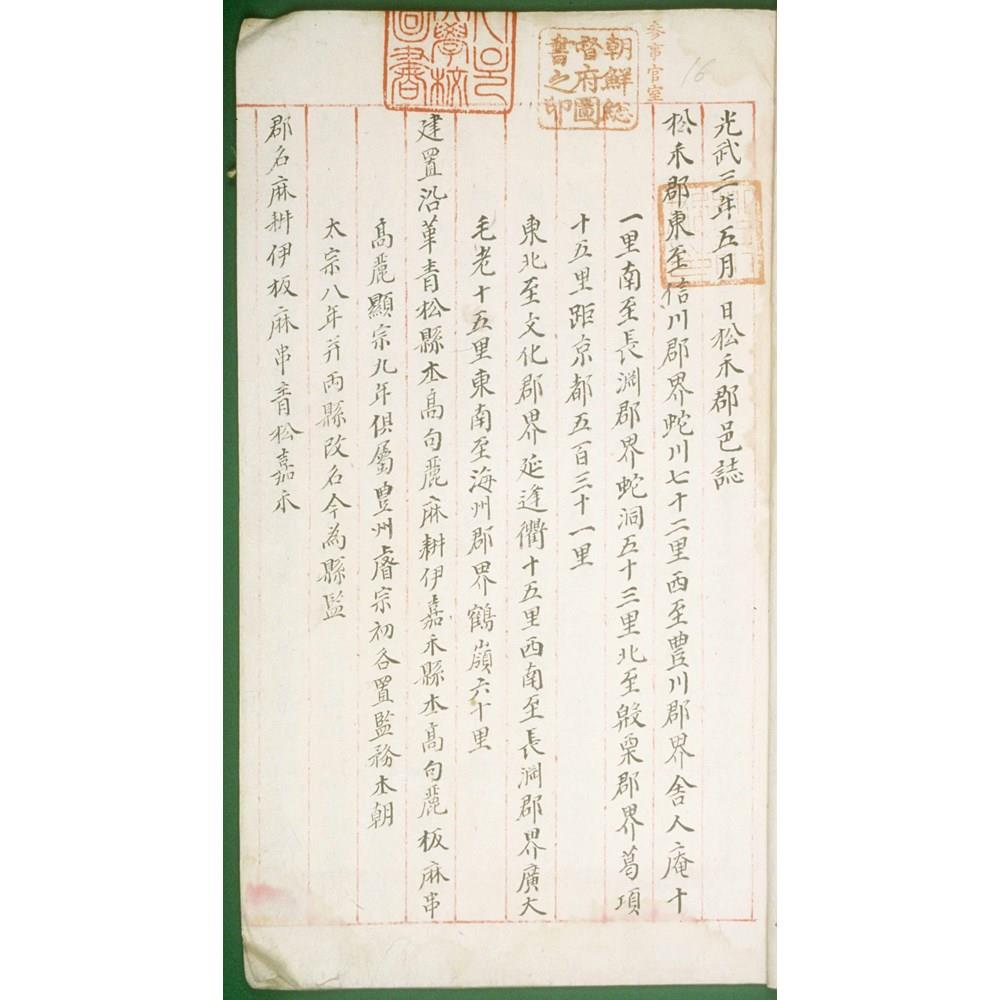 光武三年五月 日松禾郡邑誌
松禾郡東至信川郡界蛇川七十二里西至豊川郡界舍人庵十
一里南至長淵郡界蛇洞五十三里北至殷栗郡界葛項
十五里距京都五百三十一里
東北至文化郡界延逢衢十五里西南至長淵郡界廣大
毛老十五里東南至海州郡界鶴嶺六十里
建置沿革青松縣本高句麗麻耕伊嘉禾縣本高句麗板麻串
高麗顯宗九年俱屬豊州睿宗初各置監務本朝
太宗八年并兩縣改名今為縣監
郡名麻耕伊板麻串青松嘉禾
參事官室
16
朝鮮総
督府圖
書之印
大學校
圖書